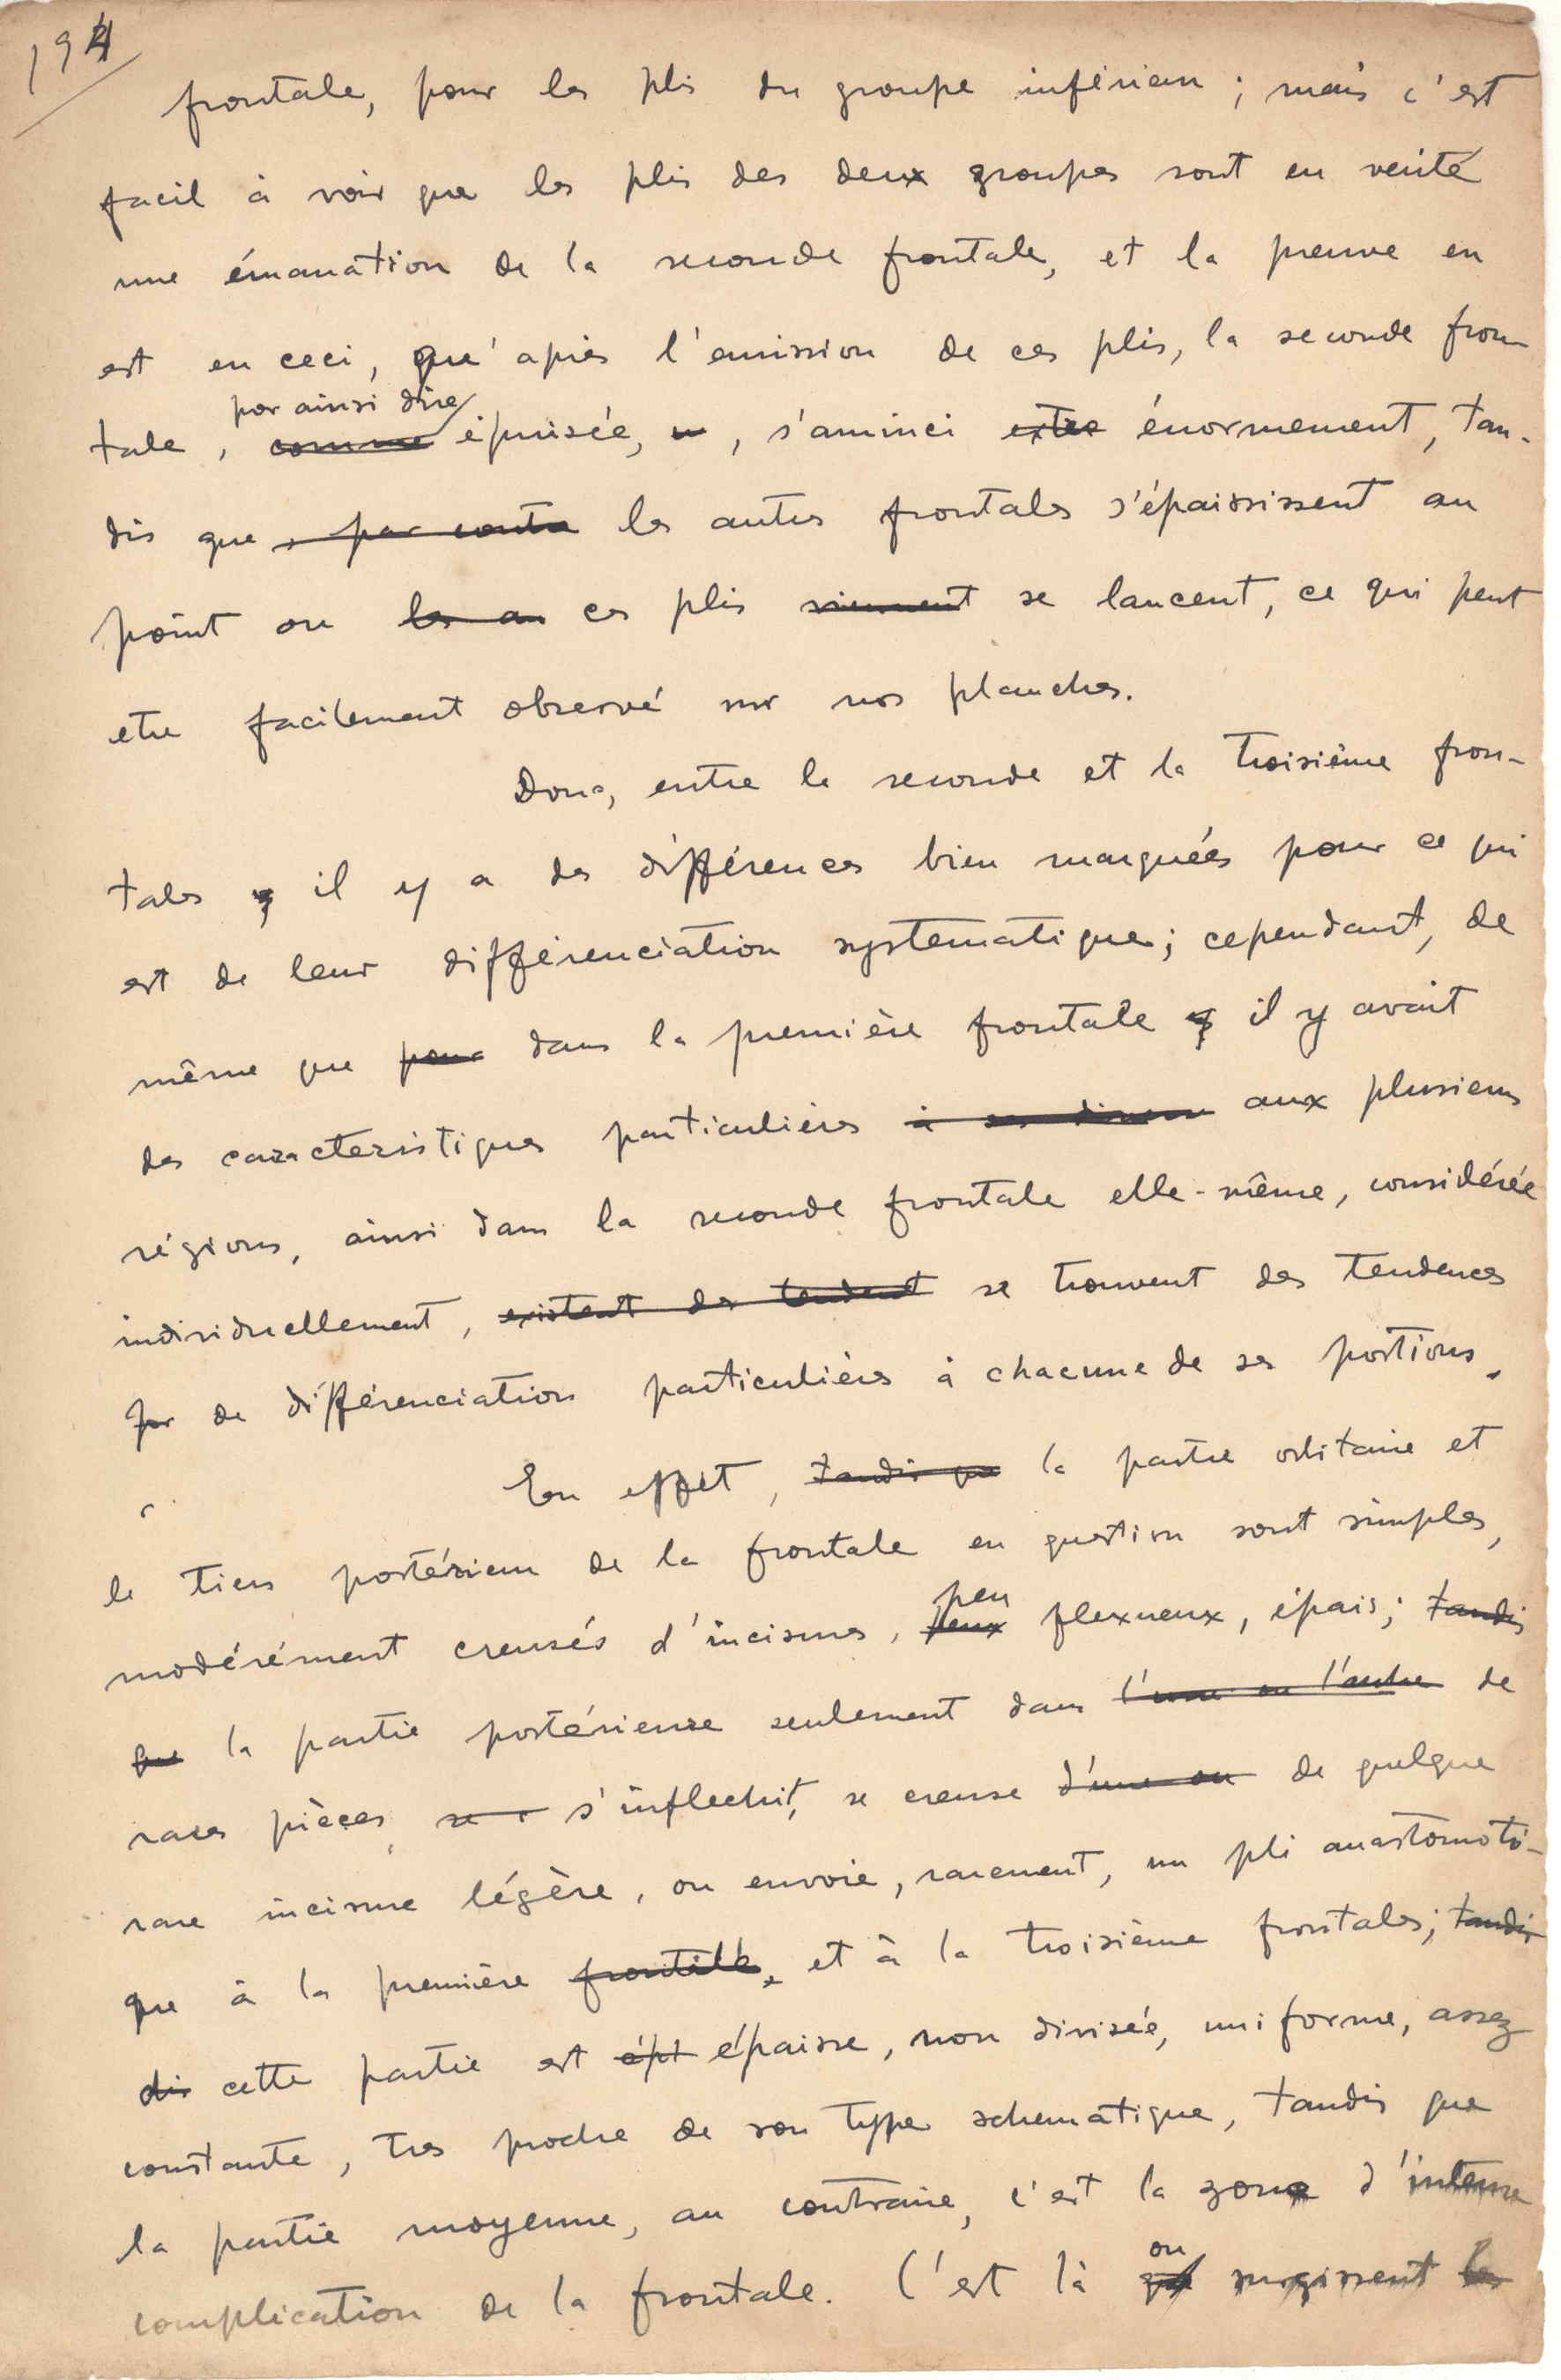 194
frontale, pour les plis du groupe inférieur ; mais c'est
facil à voir que les plis des deux groupes sont en verité
une émanation de la seconde frontale, et la preuve en
est en ceci, que' après l'emission de ces plis, la seconde fron-
par ainsi dire
tale, comme épuisée, , s'aminci extre énormement, tan-
dis que , par contre les autres frontales s'épaississent au
point ou les au ces plis viennent se lancent, ce qui peut
etre facilement observé sur nos planches.
Donc, entre la seconde et la troisième fron-
tales il y a des différences bien marquées pour ce qui
est de leur différenciation systematique; cependant, de
même que pour dans la première frontale il y avait
des caracteristiques particulières à ses divers aux plusieurs
régions, ainsi dans la seconde frontale elle-même, considérée
individuellement, existent des tendent se trouvent des tendences
par de différenciation particulières à chacune de ses portions.
En effet, tandis que la partie orbitaire et
le tiers postérieur de la frontale en question sont simples,
peu
modérément creusés d'incisures, peux flexueux, épais; tandis
que la partie postérieure seulement dans l'une ou l'autre de
rares pièces se s'inflechit, se creuse d'une ou de quelque
rare incisure légère, ou envoie, rarement, un pli anastomoti-
que à la première frontale, et à la troisième frontales; tandis
dis cette partie est épt épaisse, non divisée, uniforme, assez
constante, tres proche de son type schematique, tandis que
la partie moyenne, au contraire, c'est la zone d'intense
ou
complication de la frontale. C'est là que surgissent les